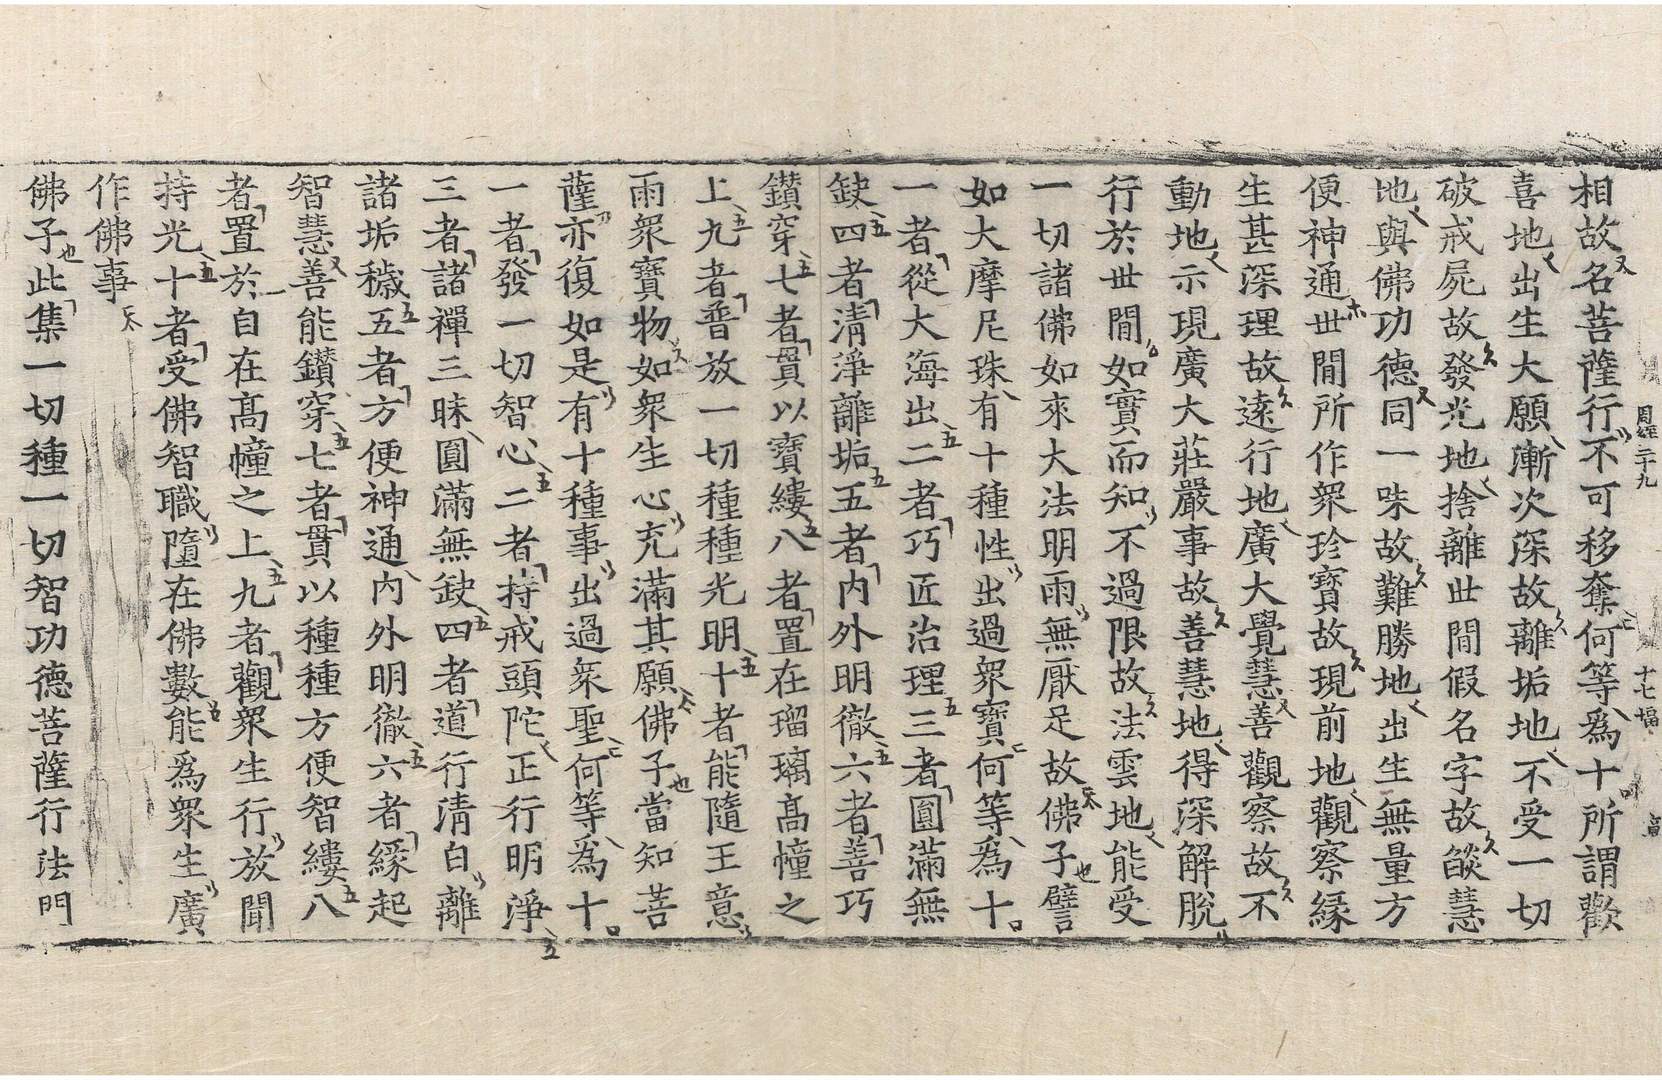 相故名菩薩行不可移奪何等爲十所謂歡
喜地出生大願漸次深故離垢地不受一切
破戒屍故發光地捨離世間假名字故燄慧
地與佛功德同一味故難勝地出生無量方
便神通世間所作衆珍寶故現前地觀察緣
生甚深理故遠行地廣大覺慧善觀察故不
動地示現廣大莊嚴事故善慧地得深解脫
行於世間如實而知不過限故法雲地能受
一切諸佛如來大法明雨無厭足故佛子譬
如大摩尼珠有十種性出過衆寶何等爲十
一者從大海出二者巧匠治理三者圓滿無
缺四者清淨離垢五者內外明徹六者善巧
鑽穿七者貫以寶縷八者置在瑠璃髙幢之
上九者普放一切種種光明十者能隨王意
雨衆寶物如衆生心充滿其願佛子當知菩
薩亦復如是有十種事出過衆聖何等爲十
一者發一切智心二者持戒頭陀正行明淨
三者諸禪三昧圓滿無缺四者道行清白離
諸垢穢五者方便神通內外明徹六者緣起
智慧善能鑽穿七者貫以種種方便智縷八
者置於自在髙幢之上九者觀衆生行放聞
持光十者受佛智職墮在佛數能爲衆生廣
作佛事
佛子此集一切種一切智功德菩薩行法門